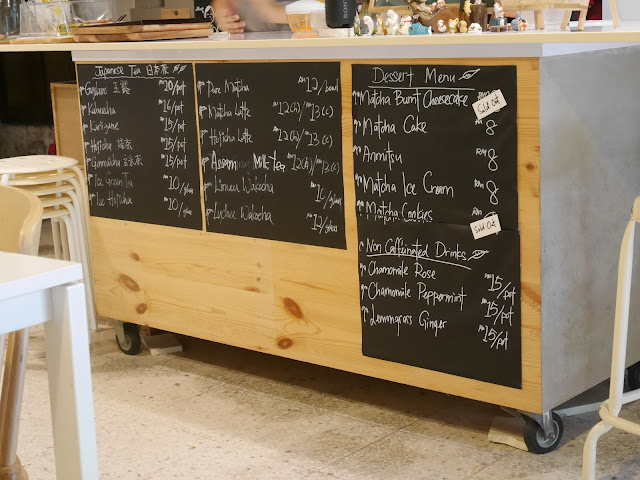 Japanese Tea 日本茶
Gyokuro 玉露 RM20/pot
Kabusecha RM16/pot
Karigane RM15/pot
Hojicha RM15/pot
Genmaicha 玄米茶 RM15/pot
Ice Green Tea RM10/glass
Ice Hojicha RM10/glass
Pure Matcha RM12/bowl
Matcha Latte RM12(h)/RM13(c)
Hojicha Latte RM12(h)/RM13(c)
Assam Milk tea RM12(h)/RM13(c)
Wakocha RM10/glass
Wakocha RM12/glass
Dessert Menu
Matcha Burnt Cheesecake Sold Out
Matcha Cake RM8
Anmitsu RM8
Matcha Ice Cream RM8
Matcha Cookies Sold Out
Non Caffeinated Drinks
Chamomile Rose RM15/pot
Chamomile Peppermint RM15/pot
Lemongrass Ginger RM15/pot